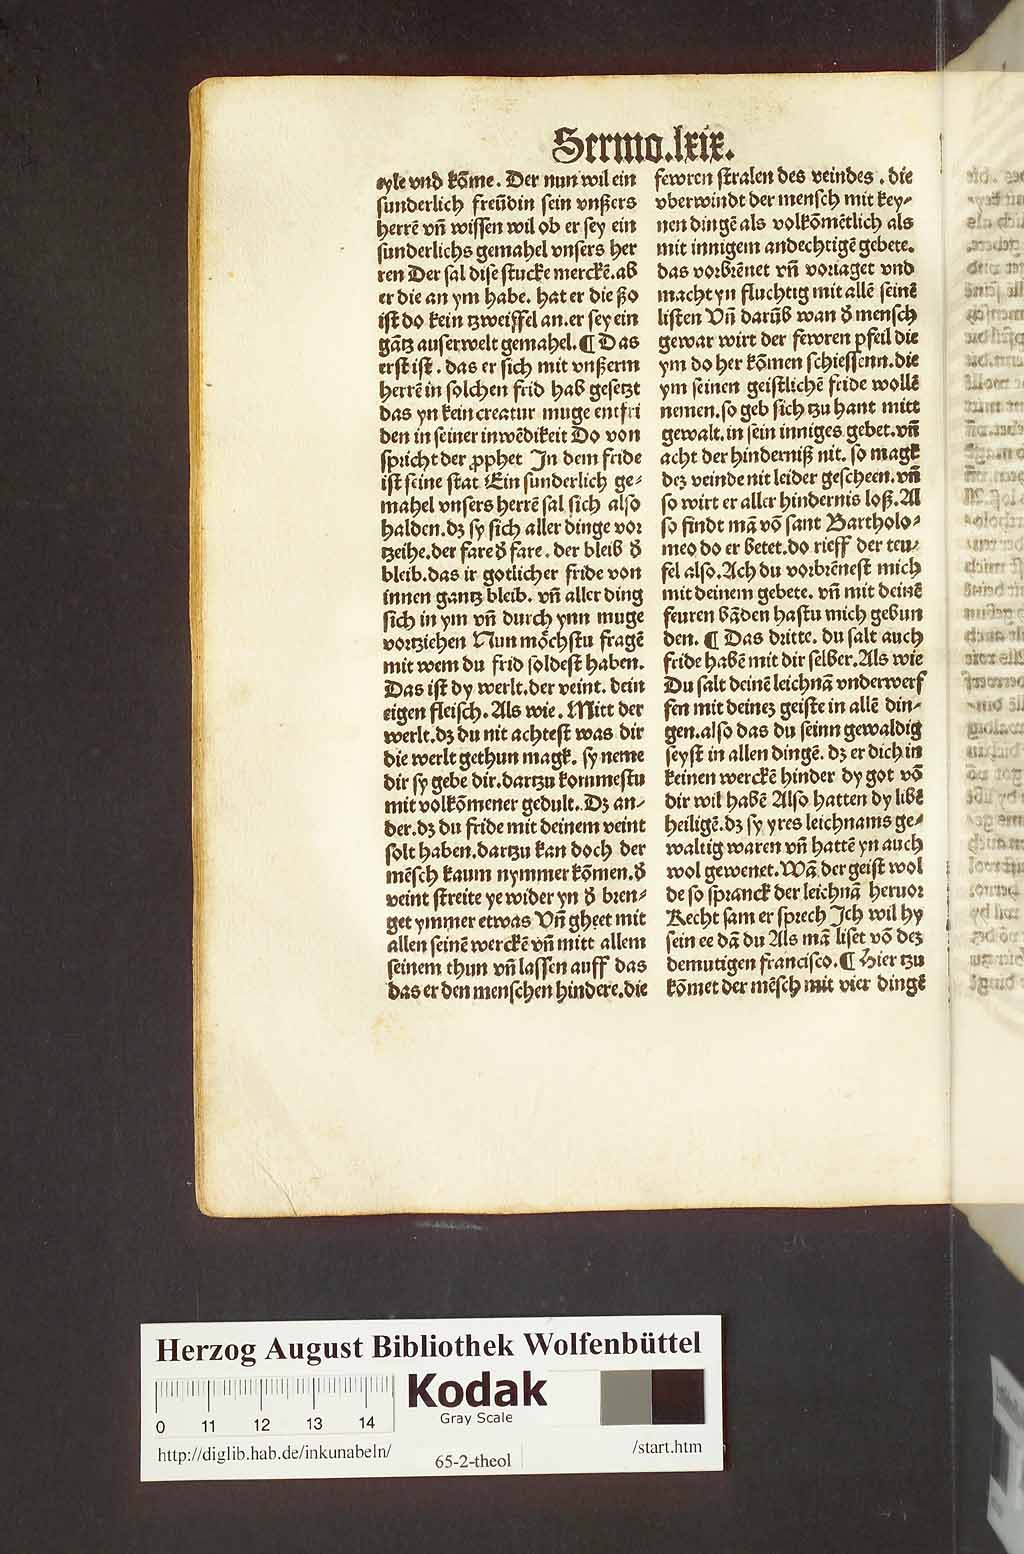 Sermo.lxix.
eyle vnd kōme. Der nun wil ein
sunderlich freūdin sein vnßers
herrē vn̄ wissen wil ob er sey ein
sunderlichs gemahel vnsers her
ren Der sal dise stucke merckē.ab
er die an ym habe. hat er die ßo
ist do kein tzweiffel an.er sey ein
gātz auserwelt gemahel.¶ Das
erst ist. das er sich mit vnßerm
herrē in solchen frid hab gesetzt
das yn kein creatur muge entfri
den in seiner inwēdikeit Do von
spricht der ꝓphet In dem fride
ist seine stat Ein sunderlich ge⸗
mahel vnsers herrē sal sich also
halden.dz sy sich aller dinge vor
tzeihe.der fare d̕ fare. der bleib d̕
bleib.das ir gotlicher fride von
innen gantz bleib. vn̄ aller ding
sich in ym vn̄ durch ynn muge
vortziehen Nun möchstu fragē
mit wem du frid soldest haben.
Das ist dy werlt.der veint. dein
eigen fleisch. Als wie. Mitt der
werlt.dz du nit achtest was dir
die werlt gethun magk. sy neme
dir sy gebe dir.dartzu kommestu
mit volkōmener gedult. Dz an⸗
der.dz du fride mit deinem veint
solt haben.dartzu kan doch der
mēsch kaum nymmer kōmen.d̕
veint streite ye wider yn d̕ bren⸗
get ymmer etwas Vn̄ gheet mit
allen seinē werckē vn̄ mitt allem
seinem thun vn̄ lassen auff das
das er den menschen hindere.die
fewren stralen des veindes. die
vberwindt der mensch mit key⸗
nen dingē als volkōmētlich als
mit innigem andechtigē gebete.
das vorbrēnet vn̄ voriaget vnd
macht yn fluchtig mit allē seinē
listen Vn̄ darūb wan d̕ mensch
gewar wirt der fewren pfeil die
ym do her kōmen schiessenn.die
ym seinen geistlichē fride wollē
nemen.so geb sich tzu hant mitt
gewalt.in sein inniges gebet.vn̄
acht der hinderniß nit. so magk
dez veinde nit leider gescheen.vn̄
so wirt er aller hindernis loß.Al
so findt mā vō sant Bartholo⸗
meo do er betet.do rieff der teu⸗
fel also.Ach du vorbrēnest mich
mit deinem gebete. vn̄ mit deinē
feuren bāden hastu mich gebun
den. ¶ Das dritte. du salt auch
fride habē mit dir selber.Als wie
Du salt deinē leichnā vnderwerf
fen mit deinez geiste in allē din⸗
gen.also das du seinn gewaldig
seyst in allen dingē. dz er dich in
keinen werckē hinder dy got vō
dir wil habē Also hatten dy libē
heiligē.dz sy yres leichnams ge⸗
waltig waren vn̄ hattē yn auch
wol gewenet.Wā der geist wol
de so spranck der leichnā heruor
Recht sam er sprech Ich wil hy
sein ee dā du Als mā liset vō dez
demutigen francisco.¶ Hier tzu
kōmet der mēsch mit vier dingē
Herzog August Bibliothek Wolfenbüttel
0 11 12 13 14
Kodak
Gray Scale
http://diglib.hab.de/inkunabeln/
65-2-theol
/start.htm